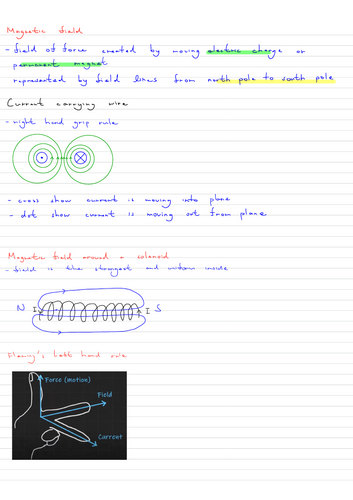 Magnetic field
- field of force created by moving electric charge or
permanent magnet
represented by field lines from north pole to south pole
Current carrying wire
- right hand grip rule
- cross show current is moving into plane
- dot show current is moving out from plane
Magnetic field around a solenoid
- field is the strongest and uniform inside
N I I S
Fleming's left hand rule
Force (motion)
Field
Current